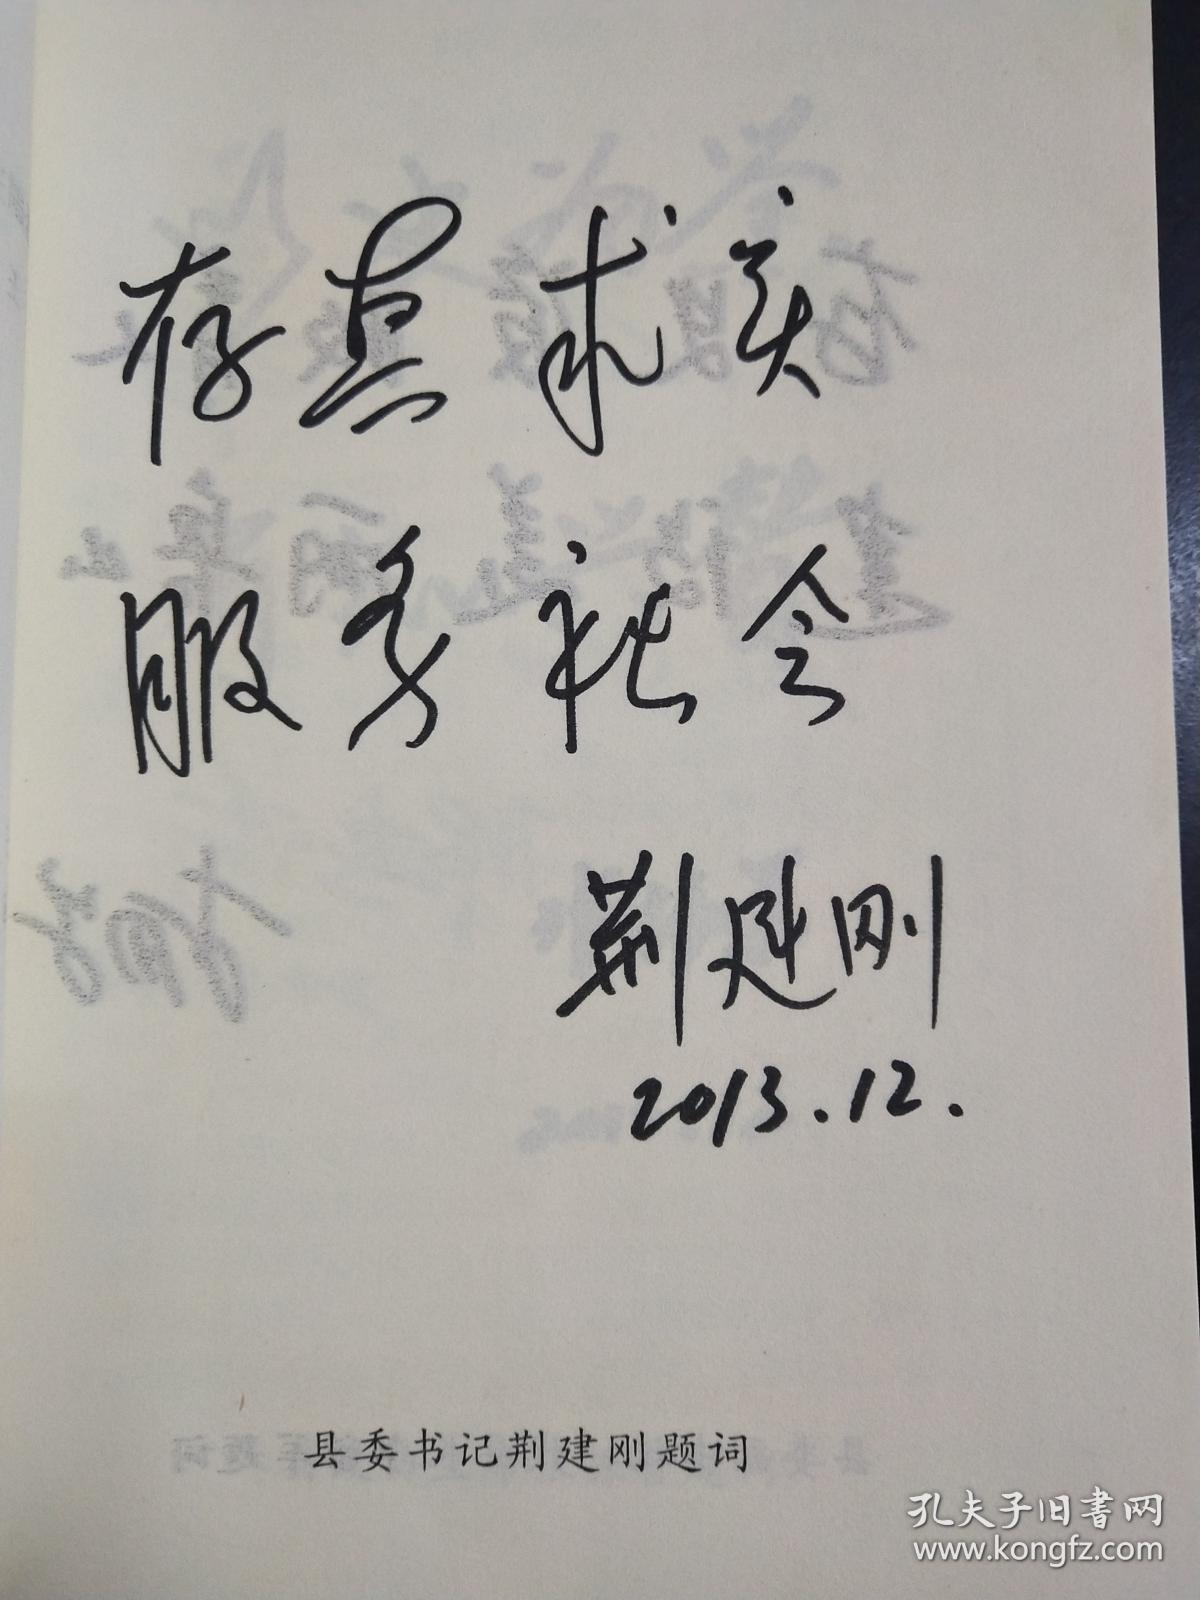 存真求实
服务社会
荆建刚
2013.12.
县委书记荆建刚题词
孔夫子旧书网
www.kongfz.com